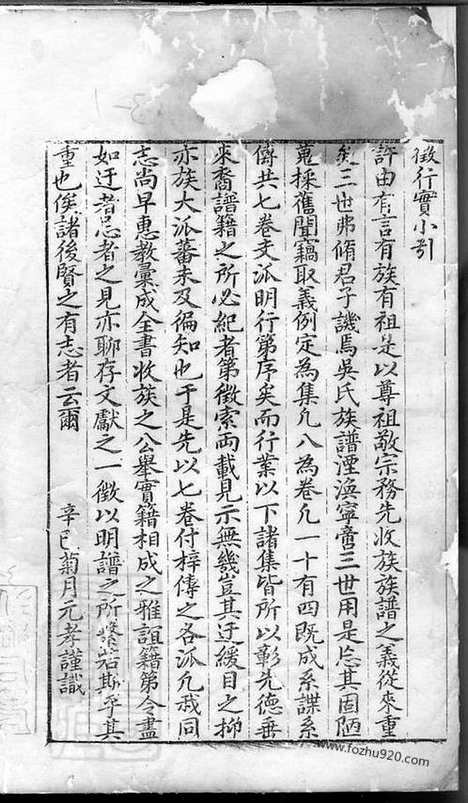 徵行實小引
許由有言有族有祖是以尊祖敬宗務先收族族譜之義從來重
矣三世弗脩君子譏焉吳氏族譜湮渙寧啻三世用是忘其固陋
蒐採舊聞竊取義例定為集凡八為卷凡一十有四既成系諜系
傳共七卷支派明行第序矣而行業以下諸集皆所以彰先德垂
來裔譜籍之所必紀者第徵索両載見示無幾豈其迂緩目之抑
亦族大派蕃未及徧知也于是先以七卷付梓傳之各派凡我同
志尚早惠教彙成全書收族之公舉實籍相成之雅誼籍第令盡
如迂者忘者之見亦聊存文獻之一徵以明譜之所繫若斯乎其
重也俟諸後賢之有志者云爾
辛巳菊月元孝謹識
www.fozhu920.com